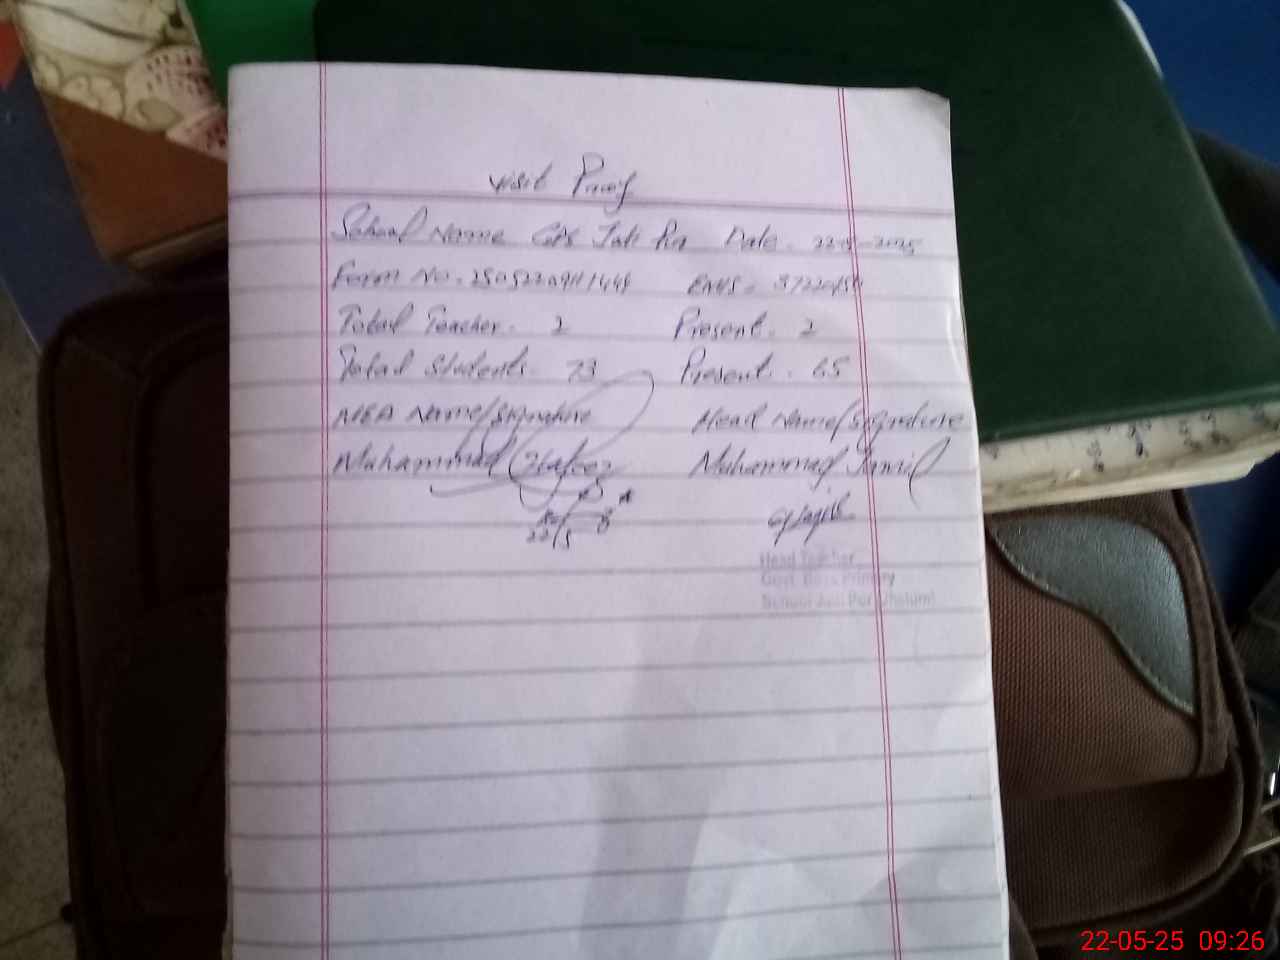 Visit Proof
School Name GPS Jati Pur Date. 22-5-2025
Form No. 25052209111449 EMIS. 3722015
Total Teacher. 2 Present. 2
Total Students. 73 Present. 65
MEA Name/Signature Head Name/Signature
Muhammad Hafeez Muhammad Jamil
22/5
Head Teacher
Govt. Boys Primary
School Pur Jhelum
22-05-25 09:26